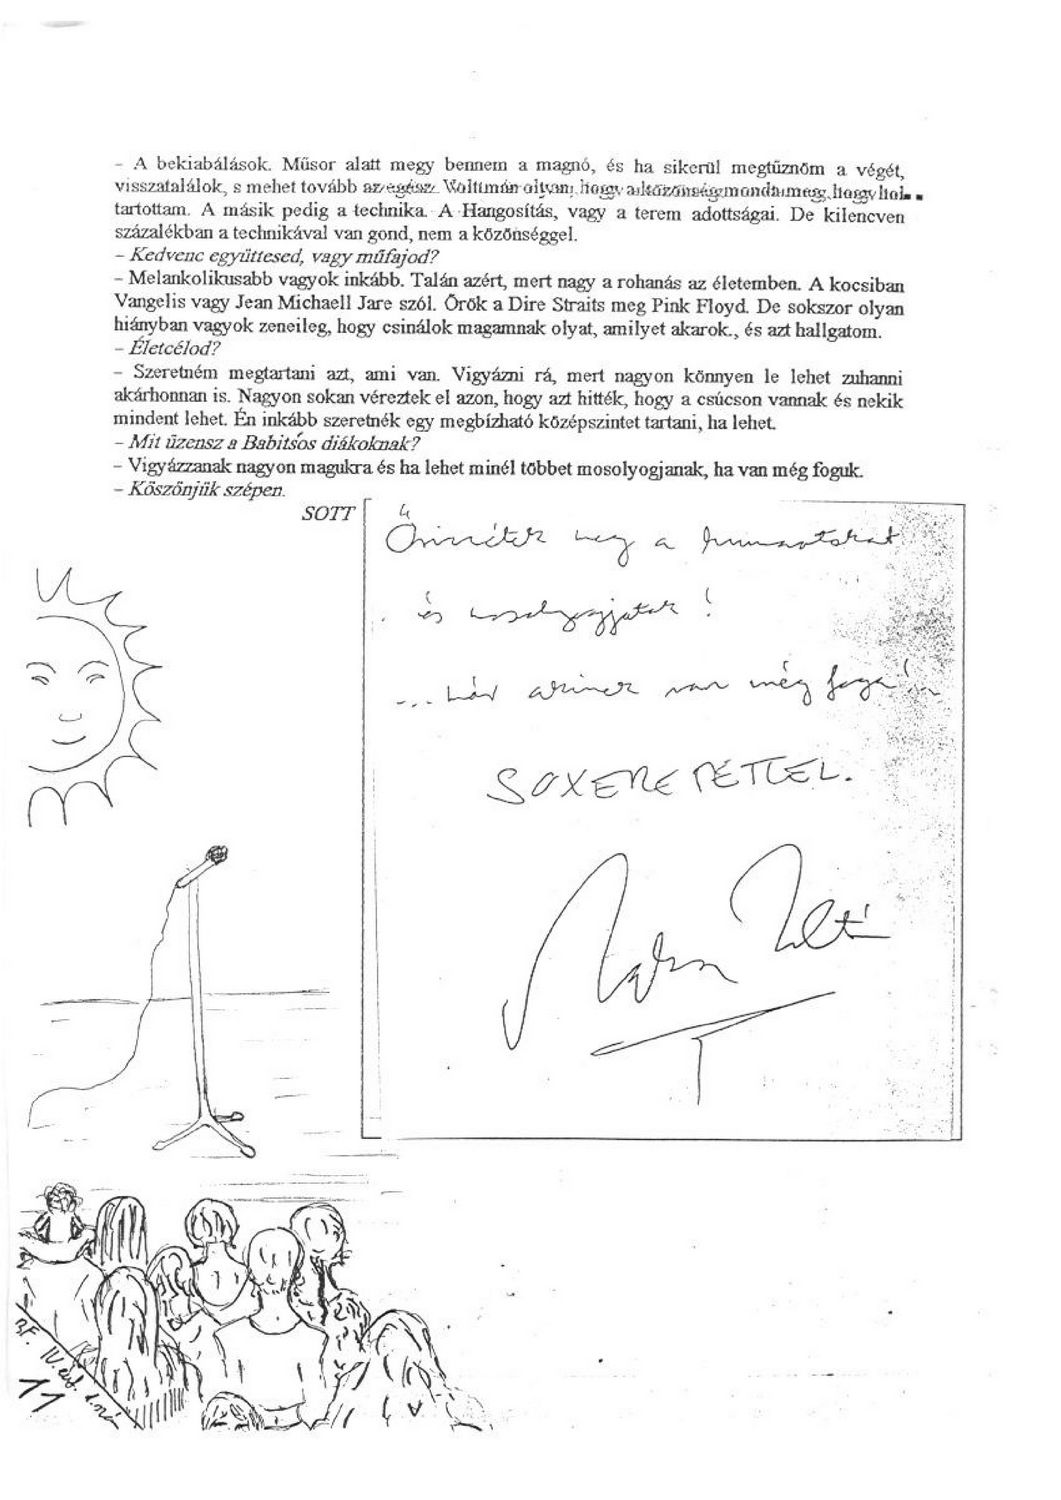 – A bekiabálások. Műsor alatt megy bennem a magnó, és ha sikerül megtűznöm a végét,
visszatalálok, s mehet tovább az egész. Volt már olyan, hogy a közönség mondta meg, hogy hol
tartottam. A másik pedig a technika. A Hangosítás, vagy a terem adottságai. De kilencven
százalékban a technikával van gond, nem a közönséggel.
– Kedvenc együttesed, vagy műfajod?
– Melankolikusabb vagyok inkább. Talán azért, mert nagy a rohanás az életemben. A kocsiban
Vangelis vagy Jean Michaell Jare szól. Örök a Dire Straits meg Pink Floyd. De sokszor olyan
hiányban vagyok zeneileg, hogy csinálok magamnak olyat, amilyet akarok., és azt hallgatom.
– Életcélod?
– Szeretném megtartani azt, ami van. Vigyázni rá, mert nagyon könnyen le lehet zuhanni
akárhonnan is. Nagyon sokan véreztek el azon, hogy azt hitték, hogy a csúcson vannak és nekik
mindent lehet. Én inkább szeretnék egy megbízható középszintet tartani, ha lehet.
– Mit üzensz a Babitsos diákoknak?
– Vigyázzanak nagyon magukra és ha lehet minél többet mosolyogjanak, ha van még foguk.
– Köszönjük szépen.
SOTT
Őrizzétek meg a humorotokat
és mosolyogjatok!
... már akinek van még foga!
SOXERETETTEL.
BF. IV. évf. 1. szám
11